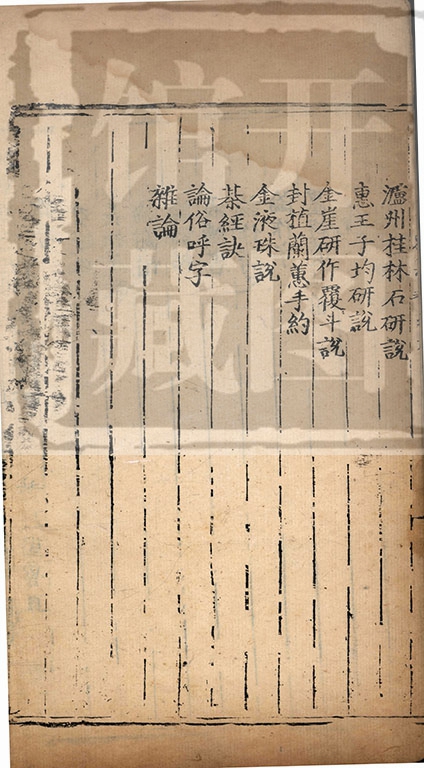 瀘州桂林石研說
惠王子均研說
金崖研作覆斗說
封植蘭蕙手約
金液珠說
棊經訣
論俗呼字
雜論
开
图
馆
藏